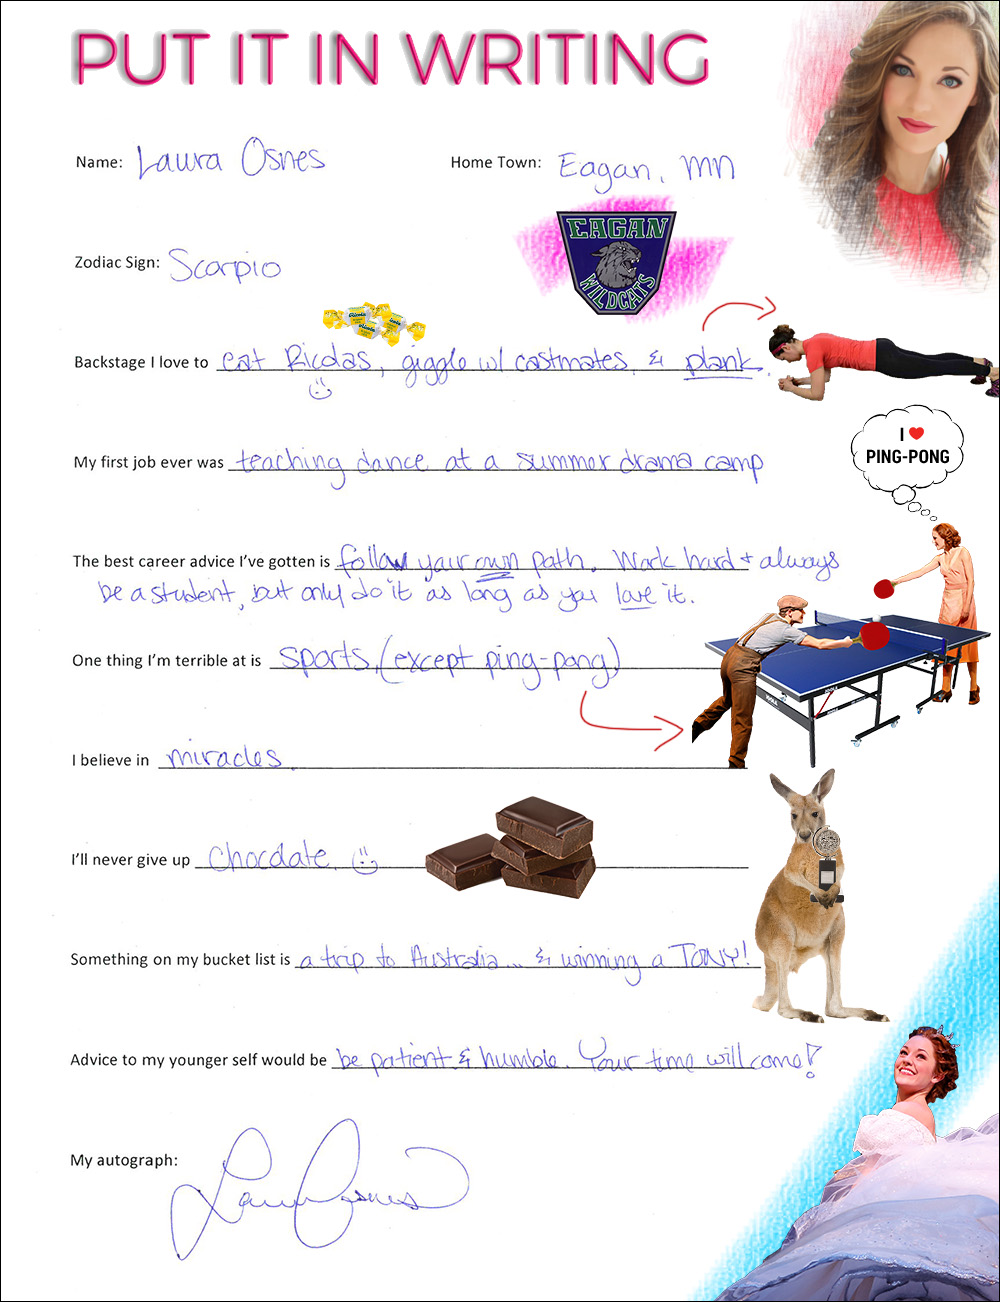 PUT IT IN WRITING
Name: Laura Osnes
Home Town: Eagan, MN
EAGAN
WILDCATS
Zodiac Sign: Scorpio
Backstage I love to eat Ricolas, giggle w/ castmates & plank.
My first job ever was teaching dance at a summer drama camp
I ❤ PING-PONG
The best career advice I've gotten is follow your own path. Work hard + always
be a student, but only do it as long as you love it.
One thing I'm terrible at is sports, (except ping-pong)
I believe in miracles.
I'll never give up chocolate. :)
Something on my bucket list is a trip to Australia... & winning a TONY!
Advice to my younger self would be be patient & humble. Your time will come!
My autograph: Laura Osnes